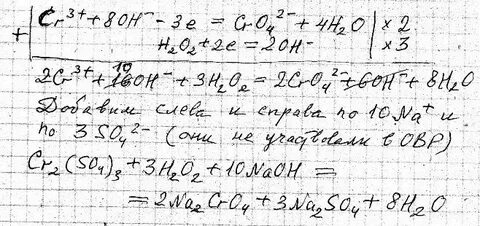 + Cr³⁺ + 8OH⁻ - 3e = CrO₄²⁻ + 4H₂O | x 2
H₂O₂ + 2e = 2OH⁻ | x 3
2Cr³⁺ + 10 16OH⁻ + 3H₂O₂ = 2CrO₄²⁻ + 6OH⁻ + 8H₂O
Добавим слева и справа по 10Na⁺ и
по 3SO₄²⁻ (они не участвовали в ОВР)
Cr₂(SO₄)₃ + 3H₂O₂ + 10NaOH =
= 2Na₂CrO₄ + 3Na₂SO₄ + 8H₂O